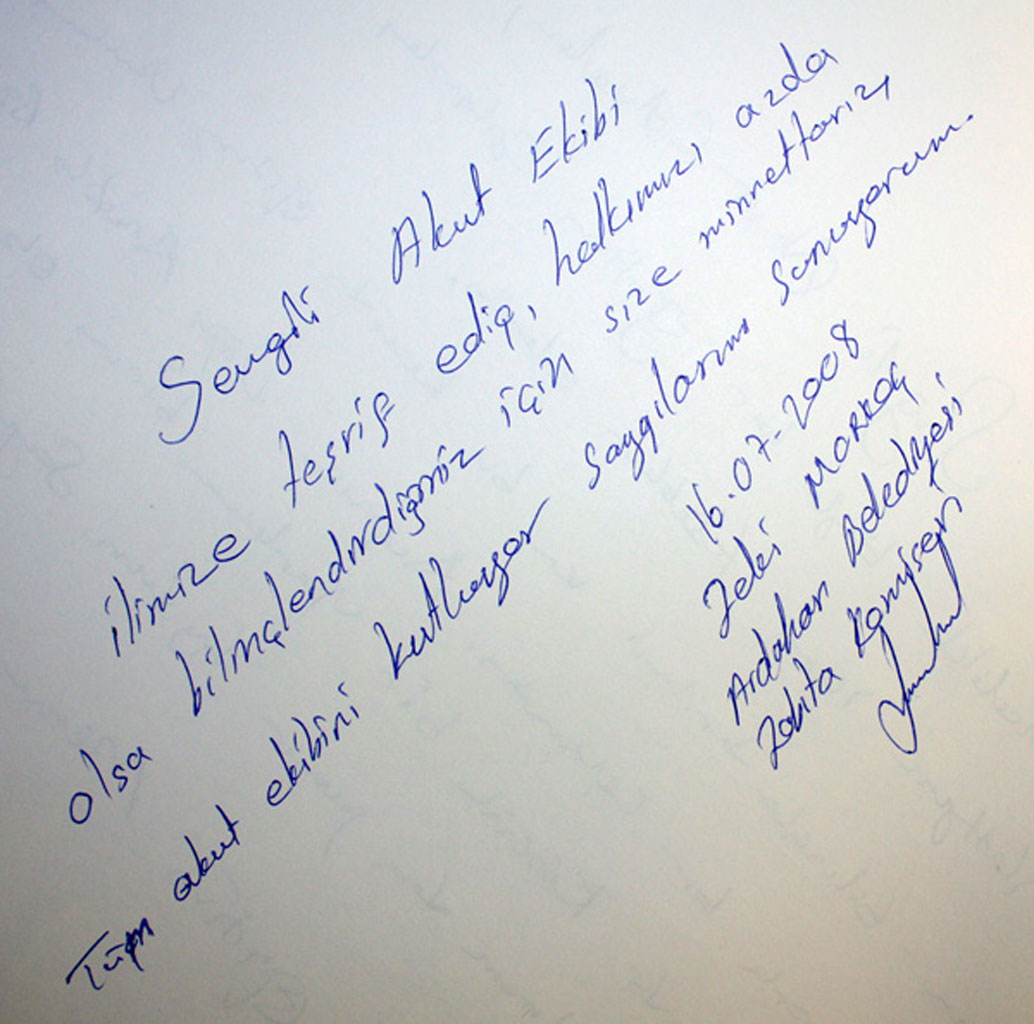 Sevgili Akut Ekibi
ilimize teşrif edip, halkımızı azda
olsa bilinçlendirdiğiniz için size minnettarız,
Tüm akut ekibini kutluyor saygılarımı sunuyorum.
16.07-2008
Zeki MARKOÇ
Ardahan Belediyesi
Zabıta Komiseri